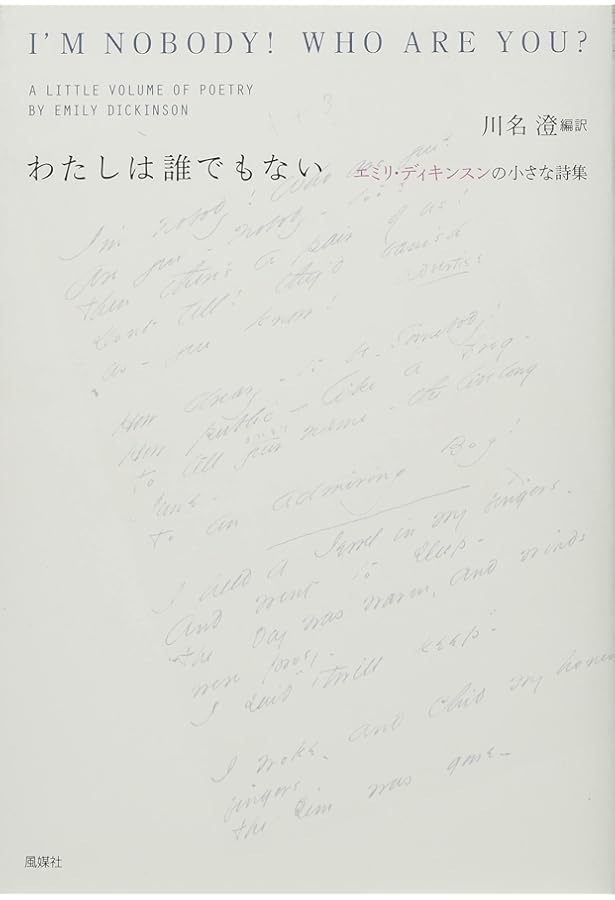 I'M NOBODY! WHO ARE YOU?
A LITTLE VOLUME OF POETRY
BY EMILY DICKINSON
川名 澄 編訳
わたしは誰でもない エミリ・ディキンスンの小さな詩集
I'm Nobody! Who are you?
Are you - Nobody - too?
Then there's a pair of us!
Dont tell! they'd
advertise
as - you know!
How dreary - to be - Somebody!
How public - like a Frog -
To tell your name - the livelong
June -
To an admiring Bog!
I held a Jewel in my fingers -
And went to sleep -
The day was warm, and winds
were prosy -
I said "Twill keep"
I woke - and chid my honest
fingers,
The Gem was gone -
風媒社